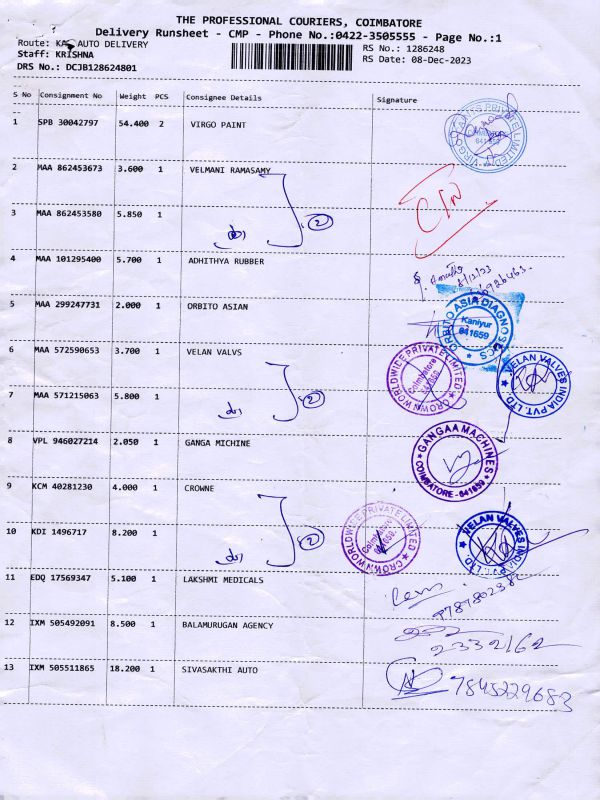 THE PROFESSIONAL COURIERS, COIMBATORE
Delivery Runsheet - CMP - Phone No.:0422-3505555 - Page No.:1
Route: AUTO DELIVERY
RS No.: 1286248
Staff: KRISHNA
RS Date: 08-Dec-2023
DRS No.: DCJB128624801
S No Consignment No Weight PCS Consignee Details Signature
1 SPB 30042797 54.400 2 VIRGO PAINT
641659
2 MAA 862453673 3.600 1 VELMANI RAMASAMY
2
3 MAA 862453580 5.850 1
4 MAA 101295400 5.700 1 ADHITHYA RUBBER
8/12/23
5 MAA 299247731 2.000 1 ORBITO ASIAN
ORBITO ASIA DIAGNOSTICS
Kaniyur
641659
6 MAA 572590653 3.700 1 VELAN VALVS
CROWN WORLDWIDE PRIVATE LIMITED
Coimbatore
641659.
VELAN VALVES INDIA PVT. LTD.
7 MAA 571215063 5.800 1
2
8 VPL 946027214 2.050 1 GANGA MICHINE
GANGAA MACHINES
COIMBATORE - 641659
9 KCM 40281230 4.000 1 CROWNE
CROWN WORLDWIDE PRIVATE LIMITED
Coimbatore
641659.
VELAN VALVES INDIA PVT. LTD.
10 KDI 1496717 8.200 1
2
11 EDQ 17569347 5.100 1 LAKSHMI MEDICALS
12 IXM 505492091 8.500 1 BALAMURUGAN AGENCY
2332162
13 IXM 505511865 18.200 1 SIVASAKTHI AUTO
7845229683